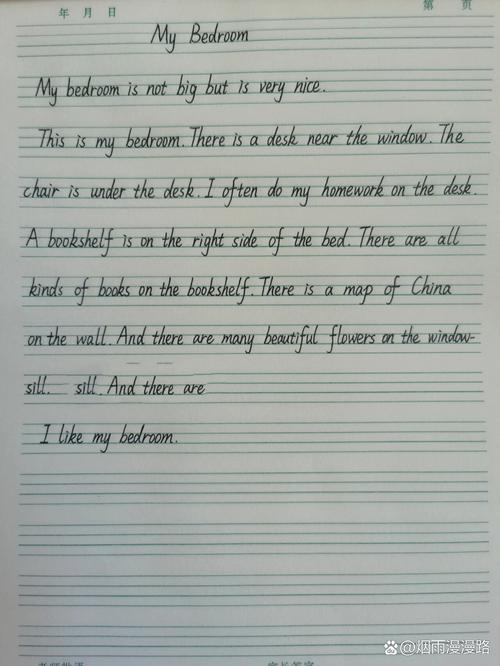 年 月 日 第 页
My Bedroom
My bedroom is not big but is very nice.
This is my bedroom. There is a desk near the window. The
chair is under the desk. I often do my homework on the desk.
A bookshelf is on the right side of the bed. There are all
kinds of books on the bookshelf. There is a map of China
on the wall. And there are many beautiful flowers on the window-
sill. sill. And there are
I like my bedroom.
烟雨漫漫路